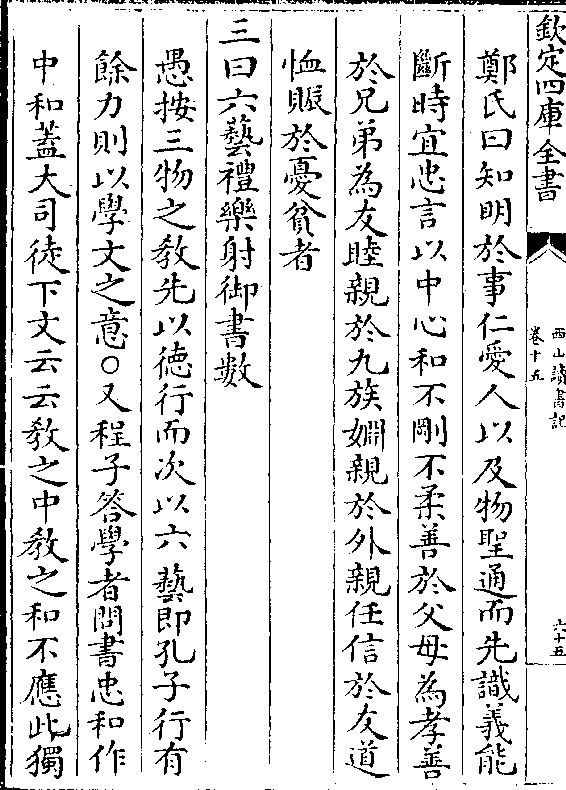 欽定四庫全書
西山讀書記
卷十五
六十五
鄭氏曰知明於事仁愛人以及物聖通而先識義能
斷時宜忠言以中心和不剛不柔善於父母為孝善
於兄弟為友睦親於九族婣親於外親任信於友道
恤賑於憂貧者
三曰六藝禮樂射御書數
愚按三物之教先以徳行而次以六藝即孔子行有
餘力則以學文之意○又程子答學者問書忠和作
中和蓋大司徒下文云云教之中教之和不應此獨